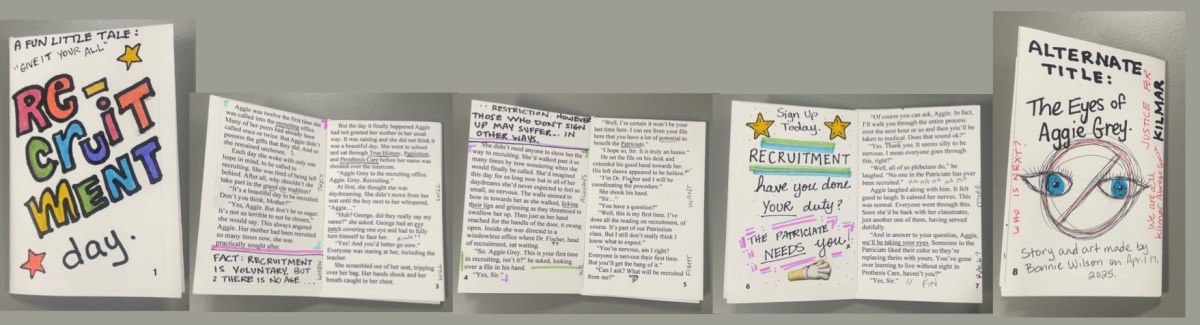 A FUN LITTLE TALE:
"GIVE IT YOUR ALL"
RE-
CRUIT
MENT
day.
1
Aggie was twelve the first time she
was called into the recruiting office.
Many of her peers had already been
called once or twice. But Aggie didn't
possess the gifts that they did. And so
she remained unchosen.
Each day she woke with only one
hope in mind, to be called up for
recruiting. She was tired of being left
behind. After all, why shouldn't she
take part in the grand ole tradition?
"It's a beautiful day to be recruited.
Don't you think, Mother?"
"Yes, Aggie. But don't be so eager.
It's not so terrible to not be chosen,"
she would say. This always angered
Aggie. Her mother had been recruited
so many times now, she was
practically sought after.
FACT: RECRUITMENT
IS VOLUNTARY, BUT
2 THERE IS NO AGE...
THEY
WHEN
But the day it finally happened Aggie
had not greeted her mother in her usual
way. It was raining and she did not think it
was a beautiful day. She went to school
and sat through True History, Patriotism,
and Prosthesis Care before her name was
called over the intercom.
"Aggie Grey to the recruiting office.
Aggie. Grey. Recruiting."
At first, she thought she was
daydreaming. She didn't move from her
seat until the boy next to her whispered,
"Aggie..."
"Huh? George, did they really say my
name?" she asked. George had an eye
patch covering one eye and had to fully
turn himself to face her.
"Yes! And you'd better go now."
Everyone was staring at her, including the
teacher.
She scrambled out of her seat, tripping
over her bag. Her hands shook and her
breath caught in her chest.
3
WILL
WILL
... RESTRICTION HOWEVER
THOSE WHO DON'T SIGN
UP MAY SUFFER... IN
OTHER WAYS.
She didn't need anyone to show her the
way to recruiting. She'd walked past it so
many times by now wondering when she
would finally be called. She'd imagined
this day for so long now but in all of her
daydreams she'd never expected to feel so
small, so nervous. The walls seemed to
bow in towards her as she walked, licking
their lips and grinning as they threatened to
swallow her up. Then just as her hand
reached for the handle of the door, it swung
open. Inside she was directed to a
windowless office where Dr. Fischer, head
of recruitment, sat waiting.
"So, Aggie Grey. This is your first time
in recruiting, isn't it?" he asked, looking
over a file in his hand.
4 "Yes, Sir."
ALWAYS
"Well, I'm certain it won't be your
last time here. I can see from your file
here that you have a lot of potential to
benefit the Patriciate."
"I hope so, Sir. It is truly an honor."
He set the file on his desk and
extended his good hand towards her.
His left sleeve appeared to be hollow.
"I'm Dr. Fischer and I will be
coordinating the procedure."
She shook his hand.
"Sir..."
"You have a question?"
"Well, this is my first time. I've
done all the reading on recruitment, of
course. It's part of our Patriotism
class. But I still don't really think I
know what to expect."
"You're nervous, am I right?
Everyone is nervous their first time.
But you'll get the hang of it."
"Can I ask? What will be recruited
from me?"
5
WANT
FIGHT
Sign Up
Today.
RECRUITMENT
have you done
YOUR duty?
THE PATRICIATE
NEEDS you!
6
"Of course you can ask, Aggie. In fact,
I'll walk you through the entire process
over the next hour or so and then you'll be
taken to medical. Does that sound ok?"
"Yes. Thank you. It seems silly to be
nervous. I mean everyone goes through
this, right?"
"Well, all of us plebeians do," he
laughed. "No one in the Patriciate has ever
been recruited."
Aggie laughed along with him. It felt
good to laugh. It calmed her nerves. This
was normal. Everyone went through this.
Soon she'd be back with her classmates,
just another one of them, having served
dutifully.
"And in answer to your question, Aggie,
we'll be taking your eyes. Someone in the
Patriciate liked their color so they're
replacing theirs with yours. You've gone
over learning to live without sight in
Prothesis Care, haven't you?"
"Yes, Sir." // FIN
7
BACK?
ALTERNATE
TITLE:
The Eyes of
Aggie Grey.
WHO IS NEXT?
JUSTICE FOR
KILMAR
we are all
Kilmar Abrego Garcia
Story and art made by
8 Bonnie Wilson on April 17,
2025.